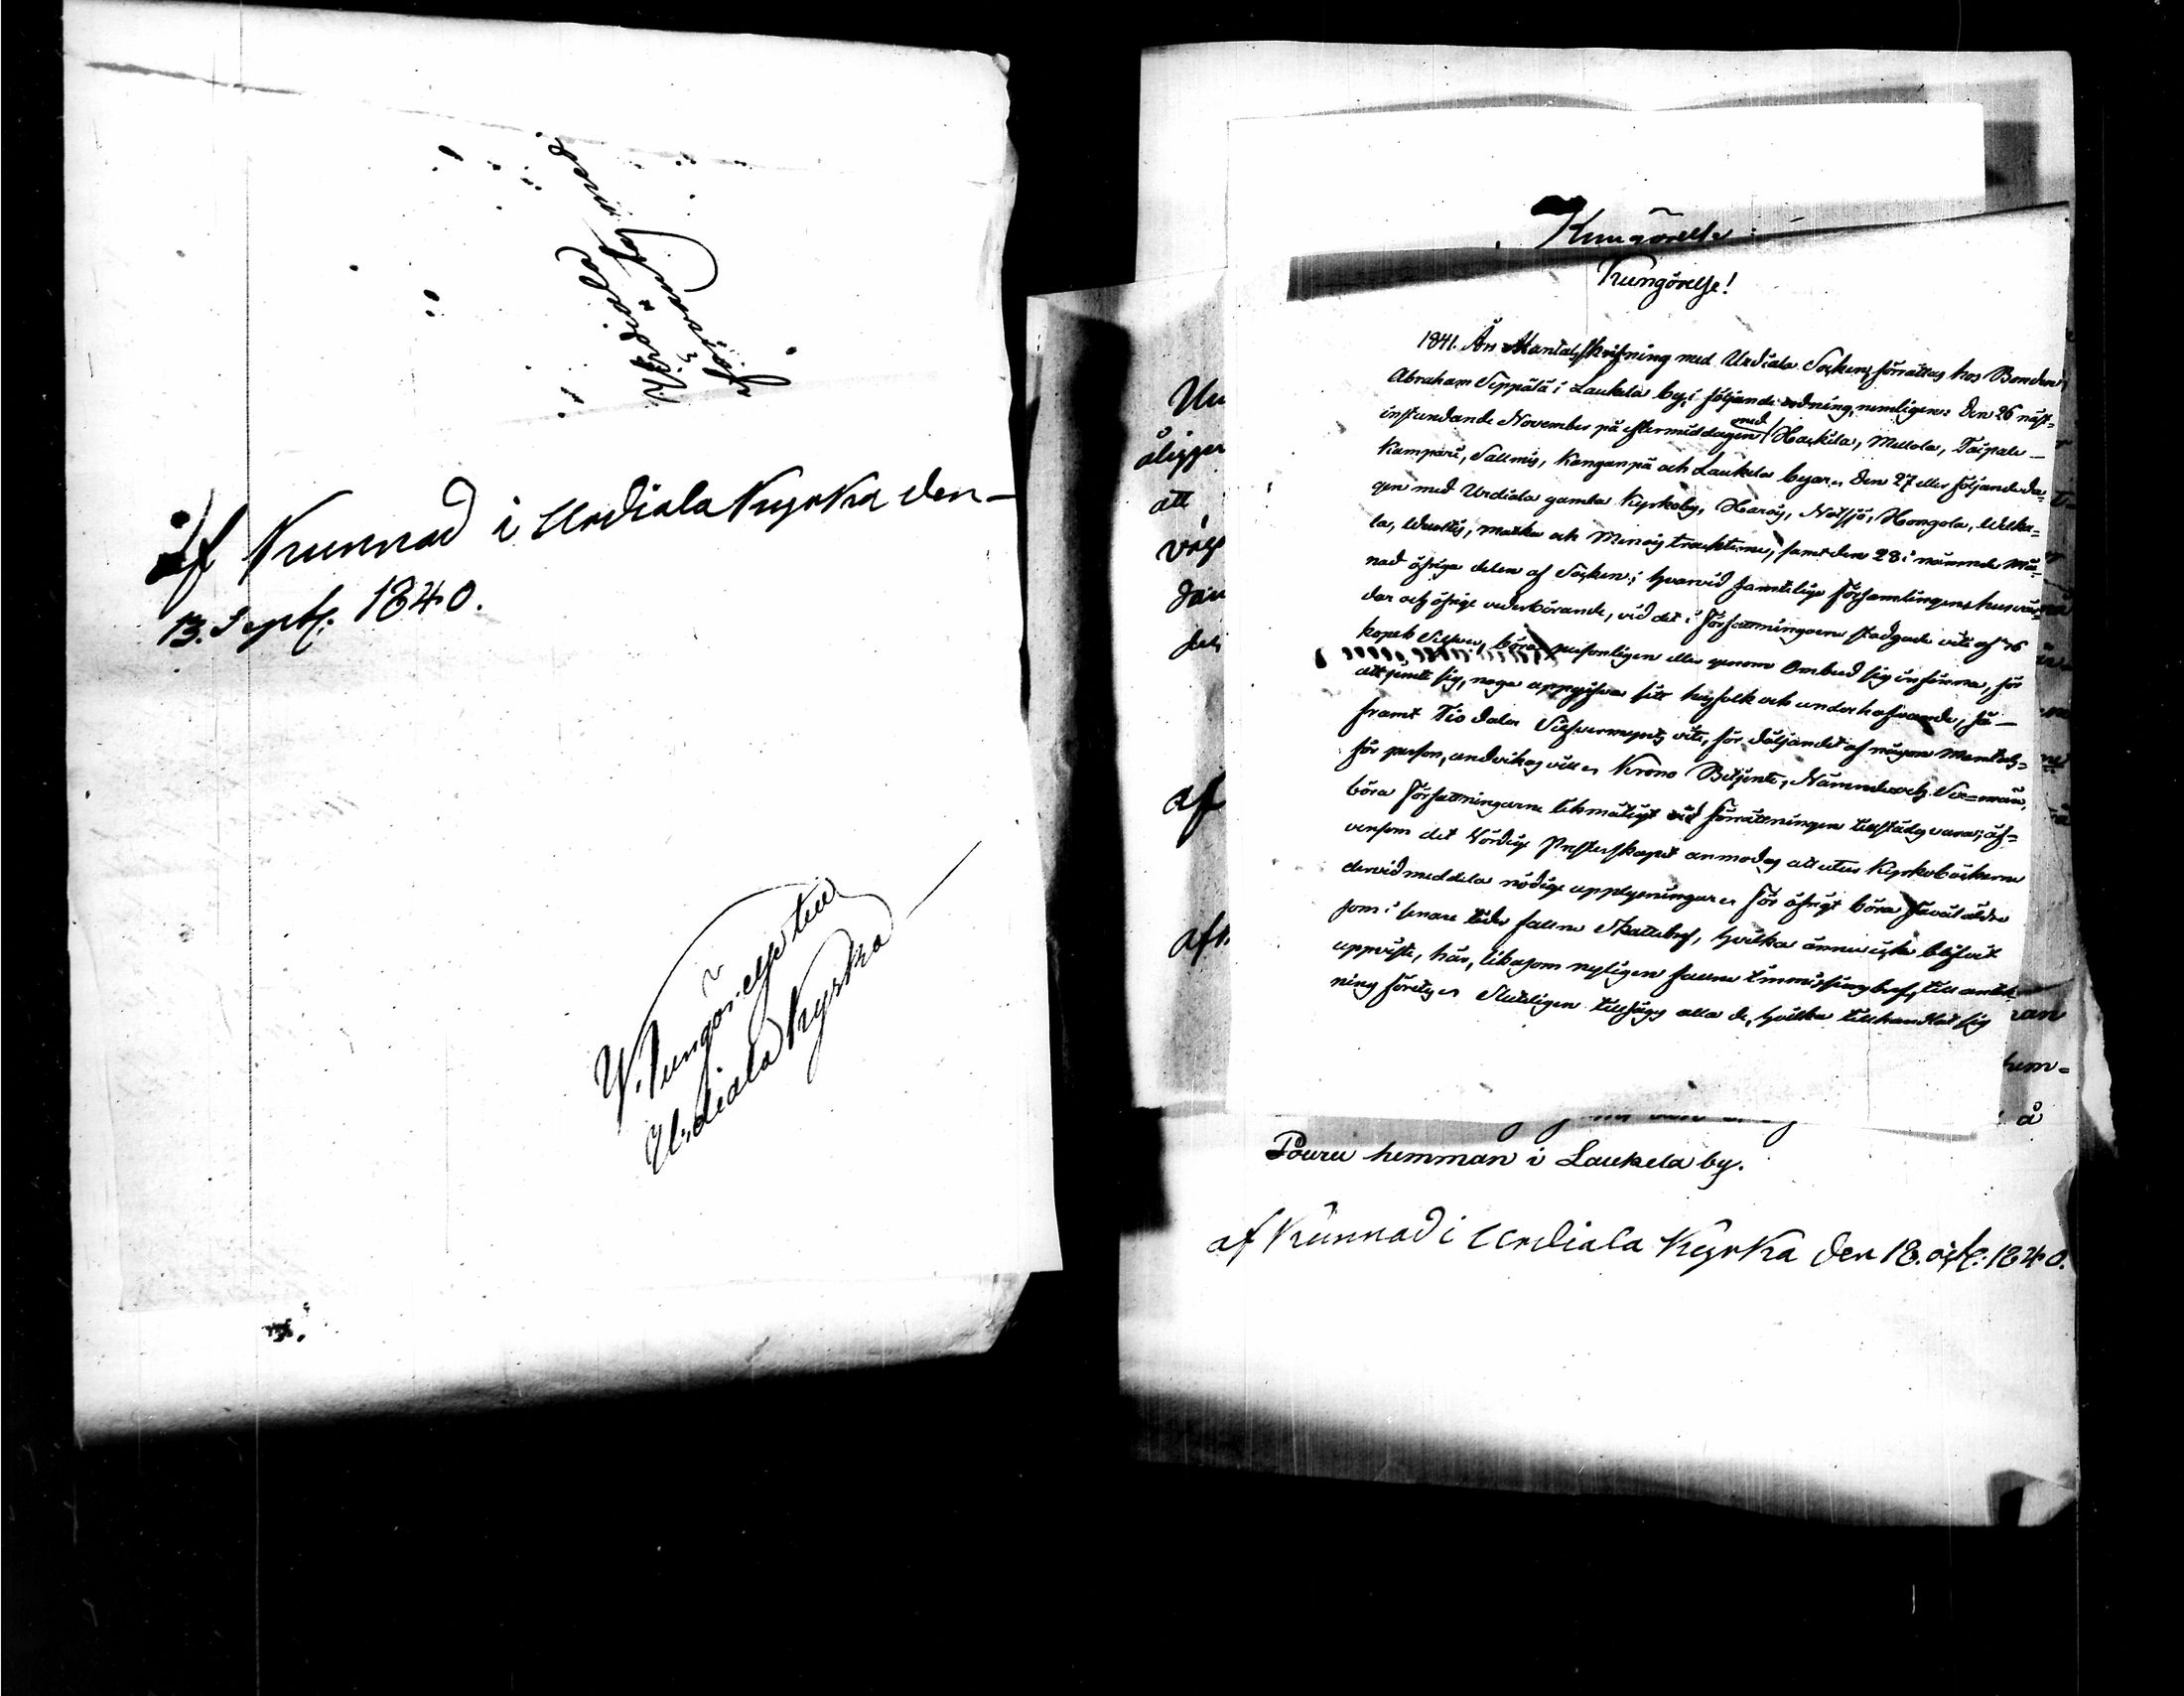 Kungörelse
Urdiala
af Kunnad i Urdiala Kyrka den
13. Septb. 1840.
Kungörelse till
Urdiala Kyrka
Kungörelse
Kungörelse!
1841. Års Mantalsskrifning med Urdiala Socken, förrättas hos Bonden
Abraham Seppälä i Laukela by, i följande ordning, nemligen: Den 26 näst=
instundande November på eftermiddagen med Hackila, Mellola, Taipale
Kampari, Salmis, Kanganpä och Laukela byar. Den 27 eller följande da=
gen med Urdiala gamla Kyrkoby, Haroij, Notsjö, Hongola, Welka=
la, matku och Menois trackterne, samt den 28 i nämnde Må=
nad öfriga delen af Socken; hvarvid samtelige Församlingens husvär=
dar och öfrige vederbörande, vid det i Författningarne stadgade vite af 76
kopek Silfver, böra personligen eller genom Ombud sig infinna, för
att jemte sig, noga uppgifva sitt husfolk och underhafvande, så
framt Tio daler Silfvermynts vite, för döljandet af någon Mantals=
för person, undvikas vill. Krono Betjente, Nämndemän och Sex=män,
böra Författningarne likmätigt vid förrättningen tillstädes vara; äf=
vensom det Vördige Presterskapet anmodas att utur Kyrkoböckerne
dervid meddela nödige upplysningar. För öfrigt böra såväl äldre
som i senare tider fallne Skattebref, hvilka ännu icke blifvit
uppviste, här, likasom nyligen fallne Immissionsbref, till anteck
ning företes. Slutligen tillsäges alla de, hvilka tillhandlat sig
Un
åligger
att
af
ran
hem=
å
Pouru hemman i Laukela by.
af Kunnad i Urdiala Kyrka den 18. octb. 1840.